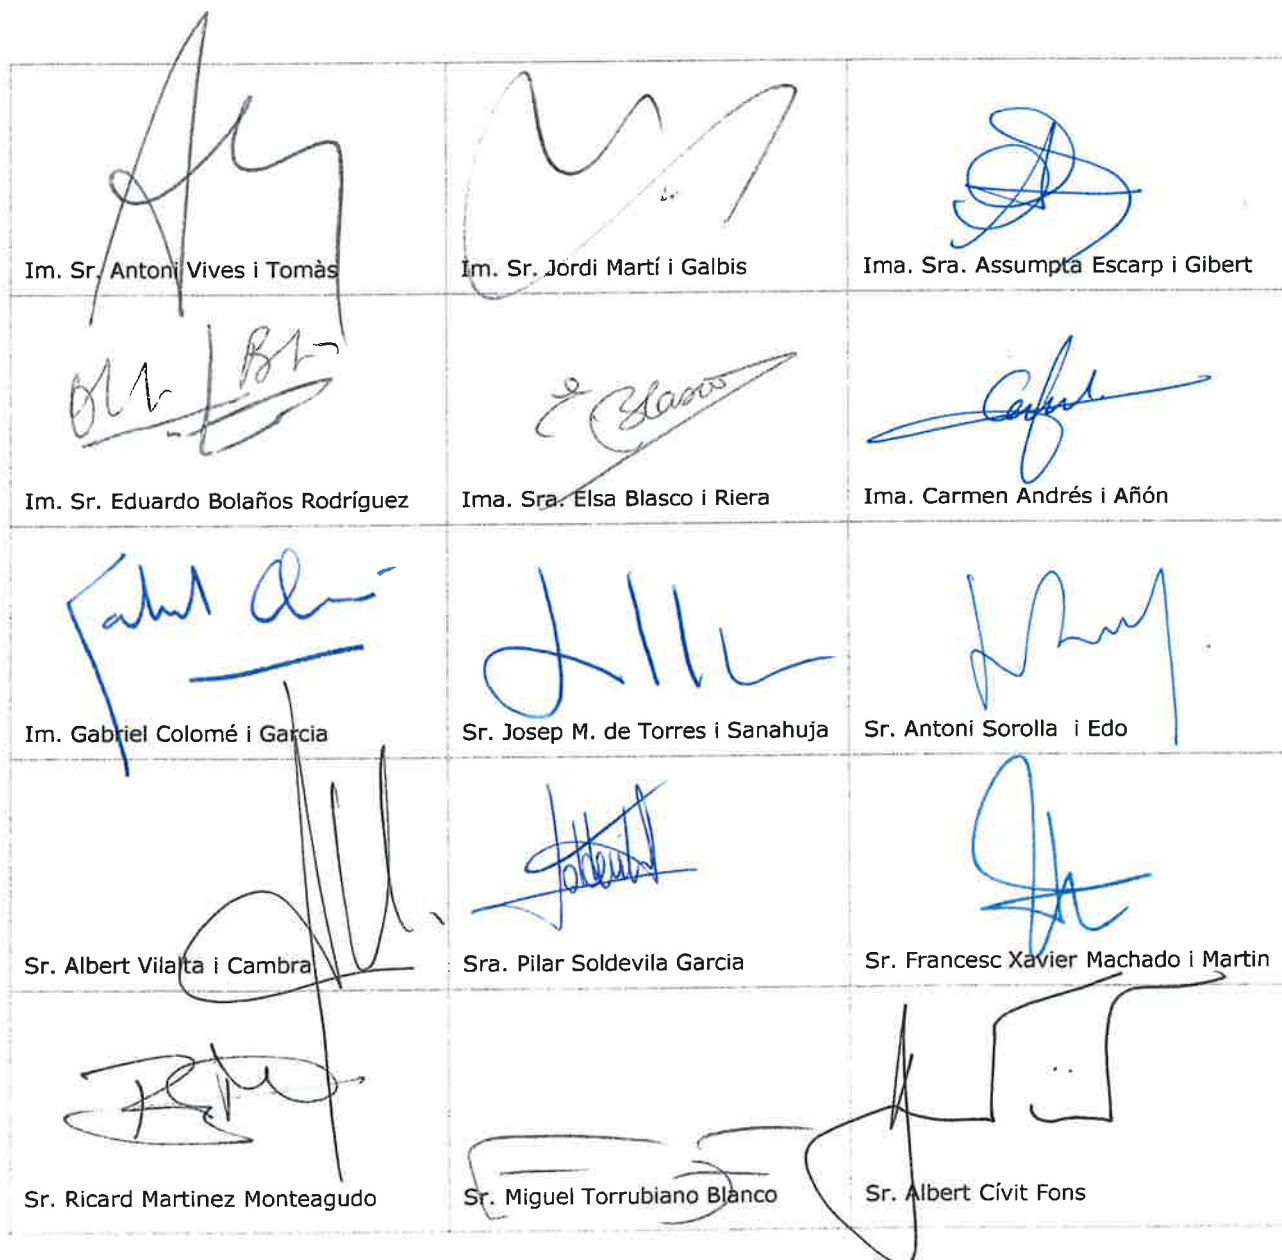 Im. Sr. Antoni Vives i Tomàs
Im. Sr. Jordi Martí i Galbis
Ima. Sra. Assumpta Escarp i Gibert
E Blasco
Im. Sr. Eduardo Bolaños Rodríguez
Ima. Sra. Elsa Blasco i Riera
Ima. Carmen Andrés i Añón
Im. Gabriel Colomé i Garcia
Sr. Josep M. de Torres i Sanahuja
Sr. Antoni Sorolla i Edo
Sr. Albert Vilalta i Cambra
Sra. Pilar Soldevila Garcia
Sr. Francesc Xavier Machado i Martin
Sr. Ricard Martinez Monteagudo
Sr. Miguel Torrubiano Blanco
Sr. Albert Cívit Fons